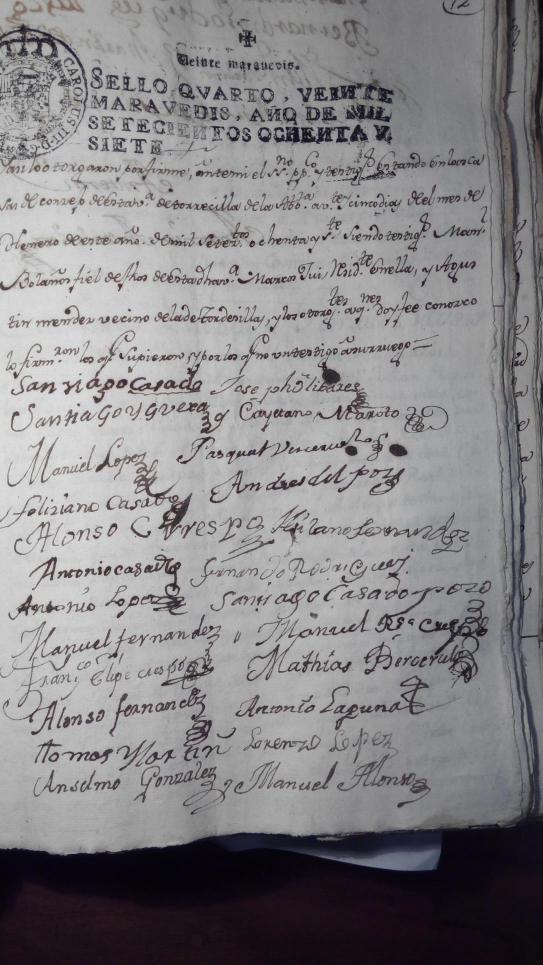 12
Veinte maravedis.
SELLO QVARTO, VEINTE
MARAVEDIS, AÑO DE MIL
SETECIENTOS OCHENTA Y
SIETE
CAROLUS III D G
lo otorgaron por firme, ante mi el SSno pp Co y testigs estando en las ca
sas del conzejo de esta va de torrecilla de la Abssa a vte cinco dias del mes de
Henero de este año de mil Setetos ochenta y Ste siendo testigs Manl
Bolaños fiel de fhos de esta dha va Marcos Ruiz en ella, y Agus
tin mendez vecino de la de tordesillas, y los otorgtes aqnes doy fee conozco
lo firmron los qe Supieron y por los qe no un testigo a su ruego
Santiago Casado Joseph
Santiago y Guera Cayetano Maroto
Manuel Lopez Pasqual Verceruelos
Feliziano Casado Andres del pozo
Alonso Crespo Hilario fernandez
Antonio casado fernando Rodriguez
Antonio Lopez Santiago Casado pozo
Manuel fernandez Manuel
Franco Elipe crespo Mathias Berceruelo
Alonso fernandez Antonio Laguna
thomas Martin Lorenzo Lopez
Anselmo Gonzalez Manuel Alonso